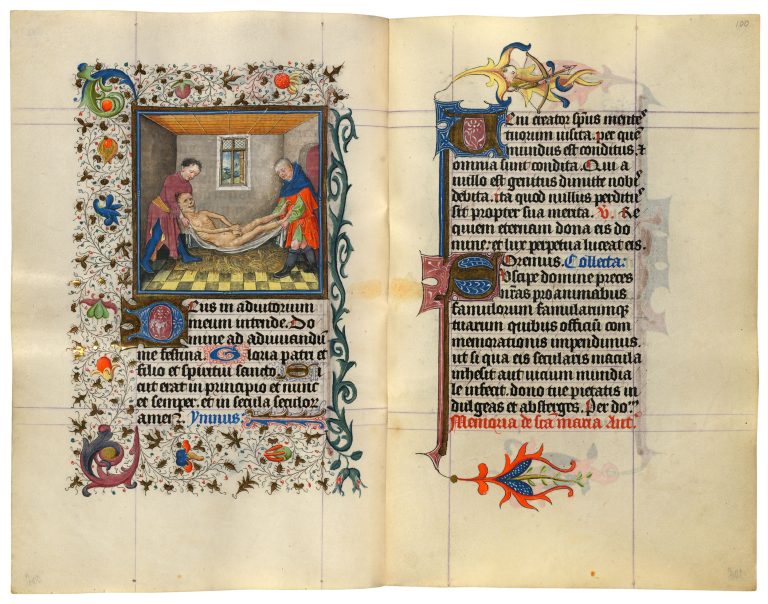 100
Deus in adiutorium
meum intende. Do
mine ad adiuuandū
me festina. Gloria patri et
filio et spiritui sancto. Si
cut erat in principio et nunc
et semper. et in secula seculor
amen. Ymnus:
Veni creator sp̄us mentes
tuorum uisita. per quē
mundus est conditus. et
omnia sunt condita. Qui a
nullo est genitus dimitte nobis
debita. ita quod nullus
sit propter sua merita. V. Re
quiem eternam dona eis do
mine: et lux perpetua luceat eis.
Oremus. Collecta:
Suscipe domine preces
n̄ras pro animabus
famulorum famularumque
tuarum quibus officiū com
memorationis impendimus.
ut si qua eis secularis macula
inhesit aut uicium mundia
le infecit. dono tue pietatis in
dulgeas et absterges. Per do
Memoria de sc̄a maria Ant.